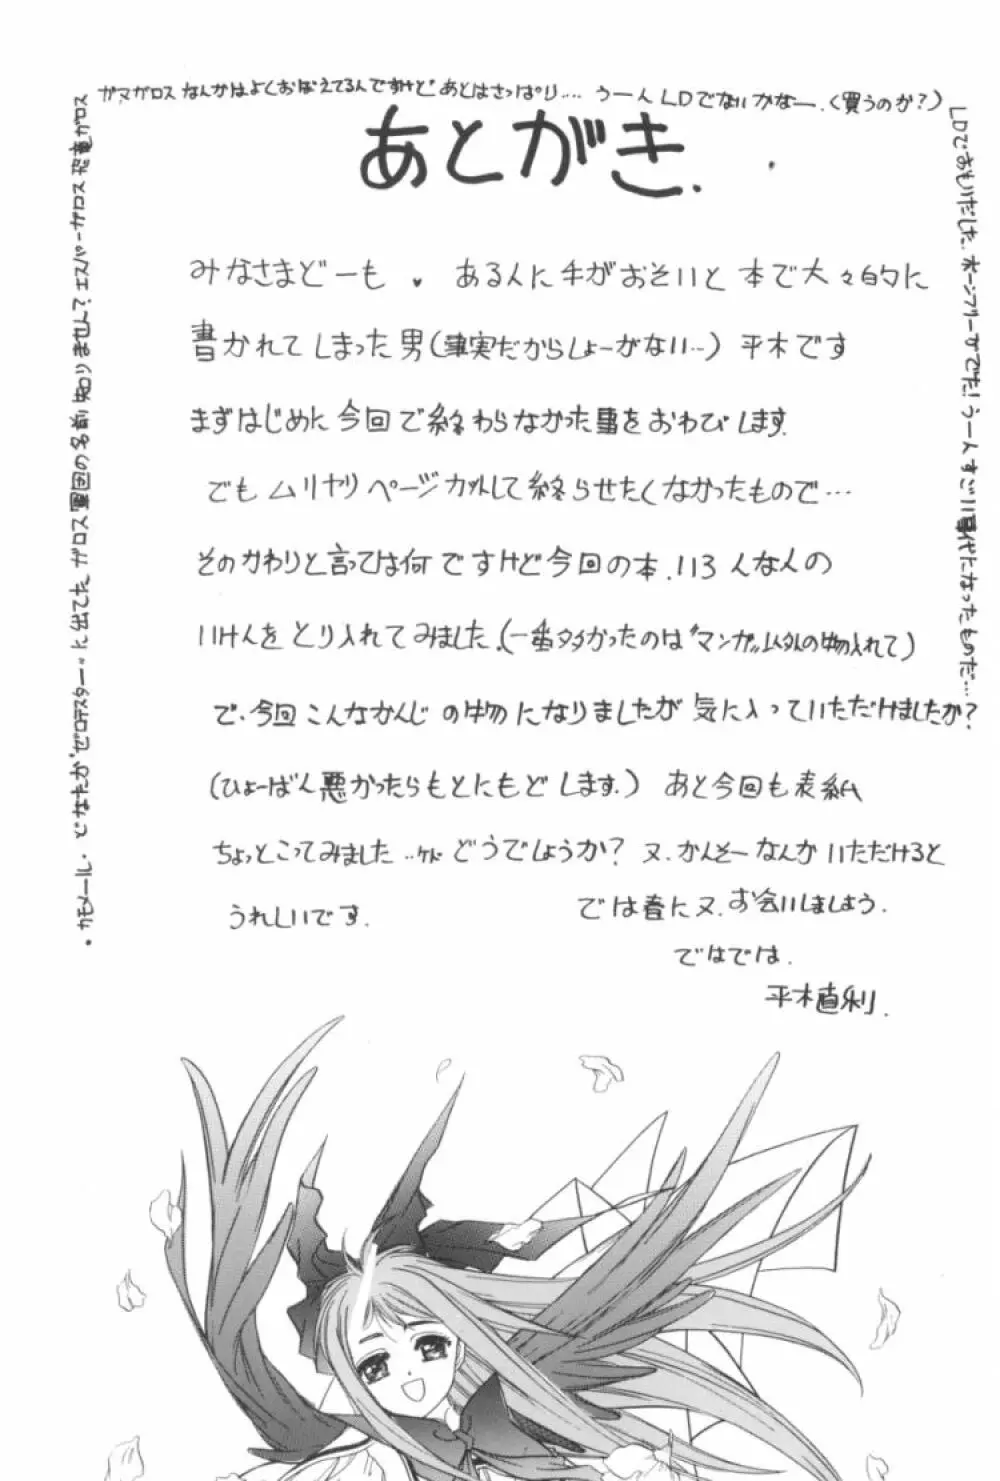 あとがき.
みなさまどーも ♥ ある人に手がおそいと 本で大々的に
書かれてしまった男(事実だからしょーがない…) 平木です
まずはじめに今回で終わらなかった事をおわびします.
でもムリヤリページカットして終らせたくなかったもので…
そのかわりと言っては何ですけど今回の本. いろんな人の
いけんをとり入れてみました.(一番多かったのは"マンガ"以外の物入れて)
で.今回こんなかんじの物になりましたが気に入っていただけましたか?
(ひょーばん悪かったらもとにもどします.) あと今回も表紙
ちょっとこってみました…ケド どうでしょうか? 又.かんそーなんかいただけると
うれしいです. では春に又.お会いしましょう.
ではでは.
平木直利.
・カモメール. どなたか"ゼロテスター"に出てた ガロス軍団の名前知りません? エスパーガロス 恐竜ガロス
ガマガロス なんかはよくおぼえてるんですけど あとはさっぱり…. うーん LDでないかなー.(買うのか?)
LDでおもいだした. ボーンフリーがでた! うーんすごい時代になったものだ…